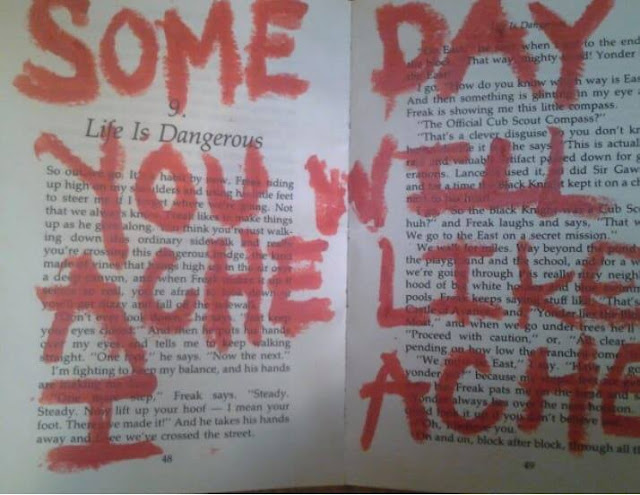 SOME DAY
YOU WILL
ACHE LIKE
I ACHE
9.
Life Is Dangerous
So out we go. It's a habit by now, Freak riding
up high on my shoulders and using his little feet
to steer me if I forget where we're going. Not
that we always know. Freak likes to make things
up as he goes along. You think you're just walk-
ing down this ordinary sidewalk and really
you're crossing this dangerous ridge, the
made of vines that hang high up in the air over
a deep canyon, and when Freak makes it up it
seems so real, you're afraid to look down or
you'll get dizzy and fall off the sidewalk.
"Don't ever look down," he says. "Just keep
your eyes closed." And then he puts his hands
over my eyes and tells me to keep walking
straight. "One foot," he says. "Now the next."
I'm fighting to keep my balance, and his hands
are making me
step," Freak says. "Steady.
Steady. Now lift up your hoof — I mean your
foot. There, we made it!" And he takes his hands
away and I see we've crossed the street.
48
Life Is Dangerous
"Go East," he says when to the end
the block. That way, mighty! Yonder
the East."
I go, "How do you know which way is East
And then something is glinting in my eye
Freak is showing me this little compass.
"The Official Cub Scout Compass?"
"That's a clever disguise so you don't kn
it he says. "This is actual
rare and valuable artifact passed down for
erations. Lancelot used it, did Sir Gaw
and for a time the Black Knight kept it on a ch
"So the Black Knight was a Cub Sc
huh?" and Freak laughs and says, "That w
We go to the East on a secret mission."
We walk for miles. Way beyond the pond
the playground and the school, and for a w
we're going through this really strey neighb
hood of big white houses and blue
pools. Freak keeps saying stuff like "That's
Castle of and "Yonder lies the
Moat," and when we go under trees he'll
"Proceed with caution," or, "All clear,"
pending on how low the branches come
"We must go East," I say. "Have
yonder?" because my
but Freak pats me on the head and says
"Yonder always lies over the next horizon.
Could look it up if you don't believe
"Oh, I believe you."
On and on, block after block, through all th
49